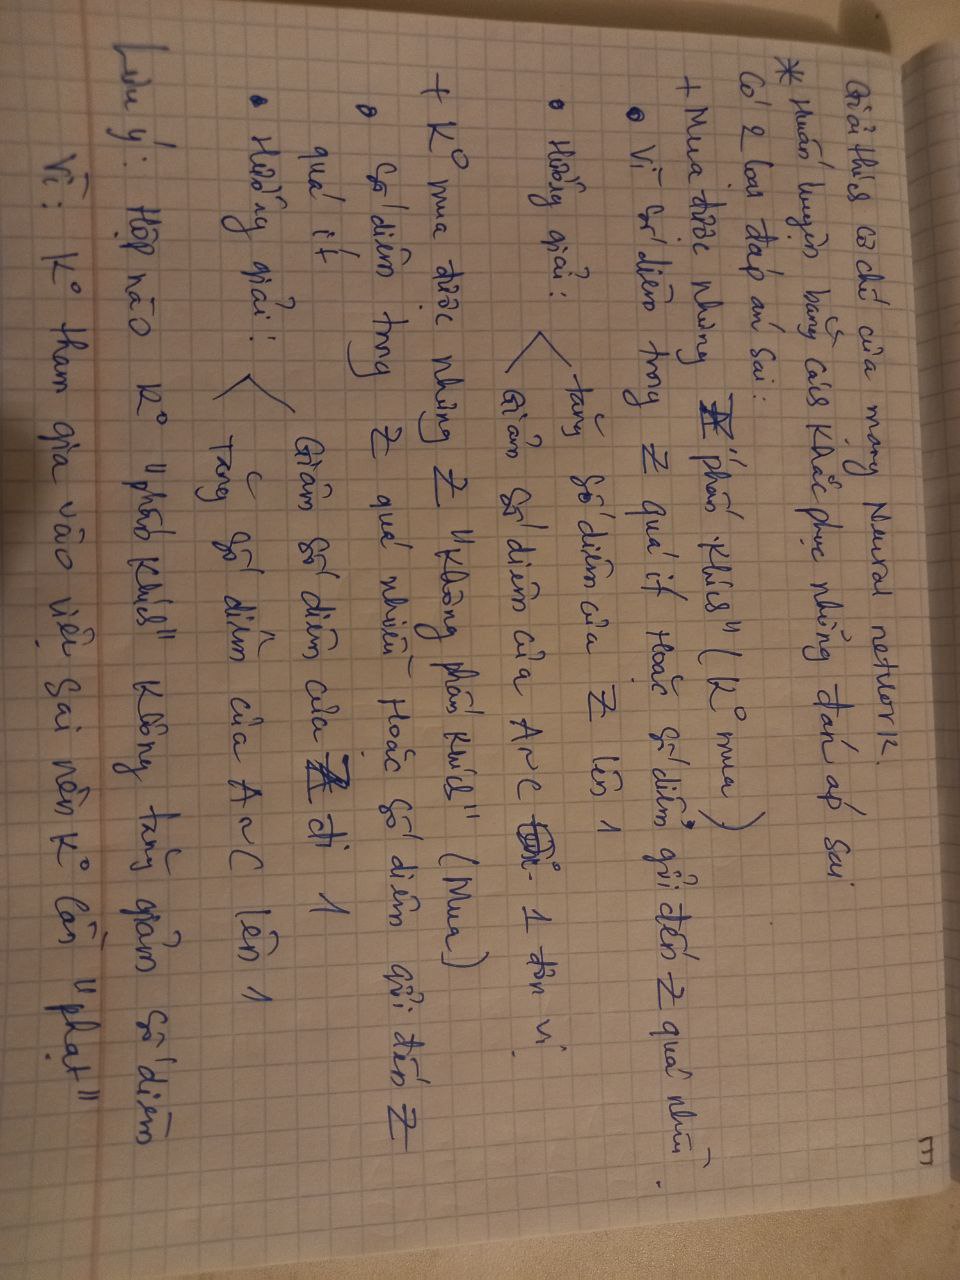 3
Giải thích cơ chế của mạng Neural network.
* Huấn luyện bằng cách khắc phục những đán áp sai
Có 2 loại đáp án sai:
+ Mua được những Z "phấn khích" (K° mua)
• Vì số điểm trong Z quá ít Hoặc số điểm gửi đến Z quá nhiều.
• Hướng giải: tăng số điểm của Z lên 1
Giảm số điểm của A~C 1 đơn vị
+ K° mua được những Z "không phấn khích" (Mua)
• Số điểm trong Z quá nhiều Hoặc số điểm gửi đến Z
quá ít
• Hướng giải: Giảm số điểm của Z đi 1
Tăng số điểm của A~C lên 1
Lưu ý: Hộp nào K° "phấn khích" không tăng giảm số điểm
Vì: K° tham gia vào việc sai nên K° cần "phạt"